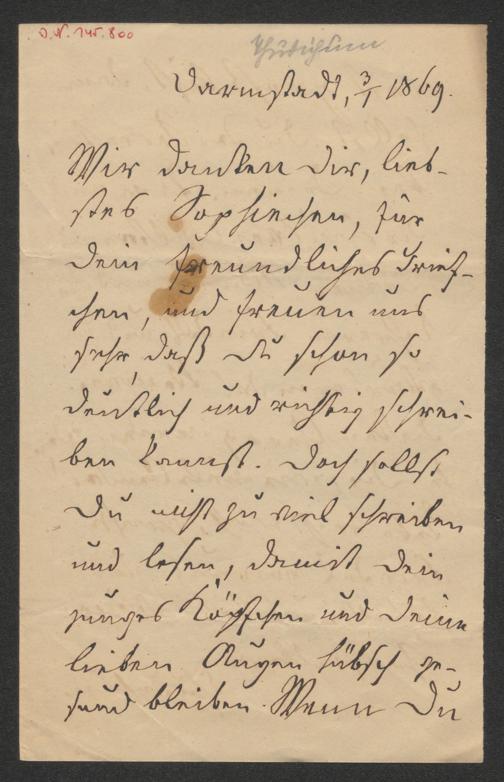 J.N. 145.800
Thudichum
Darmstadt, 3/1 1869.
Wir danken Dir, lieb-
stes Sophiechen, für
dein freundliches Brief-
chen, und freuen uns
sehr, daß du schon so
deutlich und richtig schrei-
ben kannst. Doch sollst
Du nicht zu viel schreiben
und lesen, damit dein
junges Köpfchen und deine
lieben Augen hübsch ge-
sund bleiben. Wenn Du